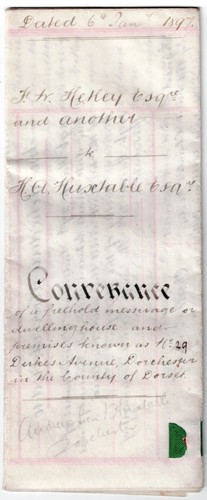 Dated 6th Jany 1897.
F. W. Ketley Esqre
and another
to
H. A. Huxtable Esqre
Conveyance
of a freehold messuage or
dwellinghouse and
premises known as No. 29
Dukes Avenue, Dorchester
in the County of Dorset.
Dorchester